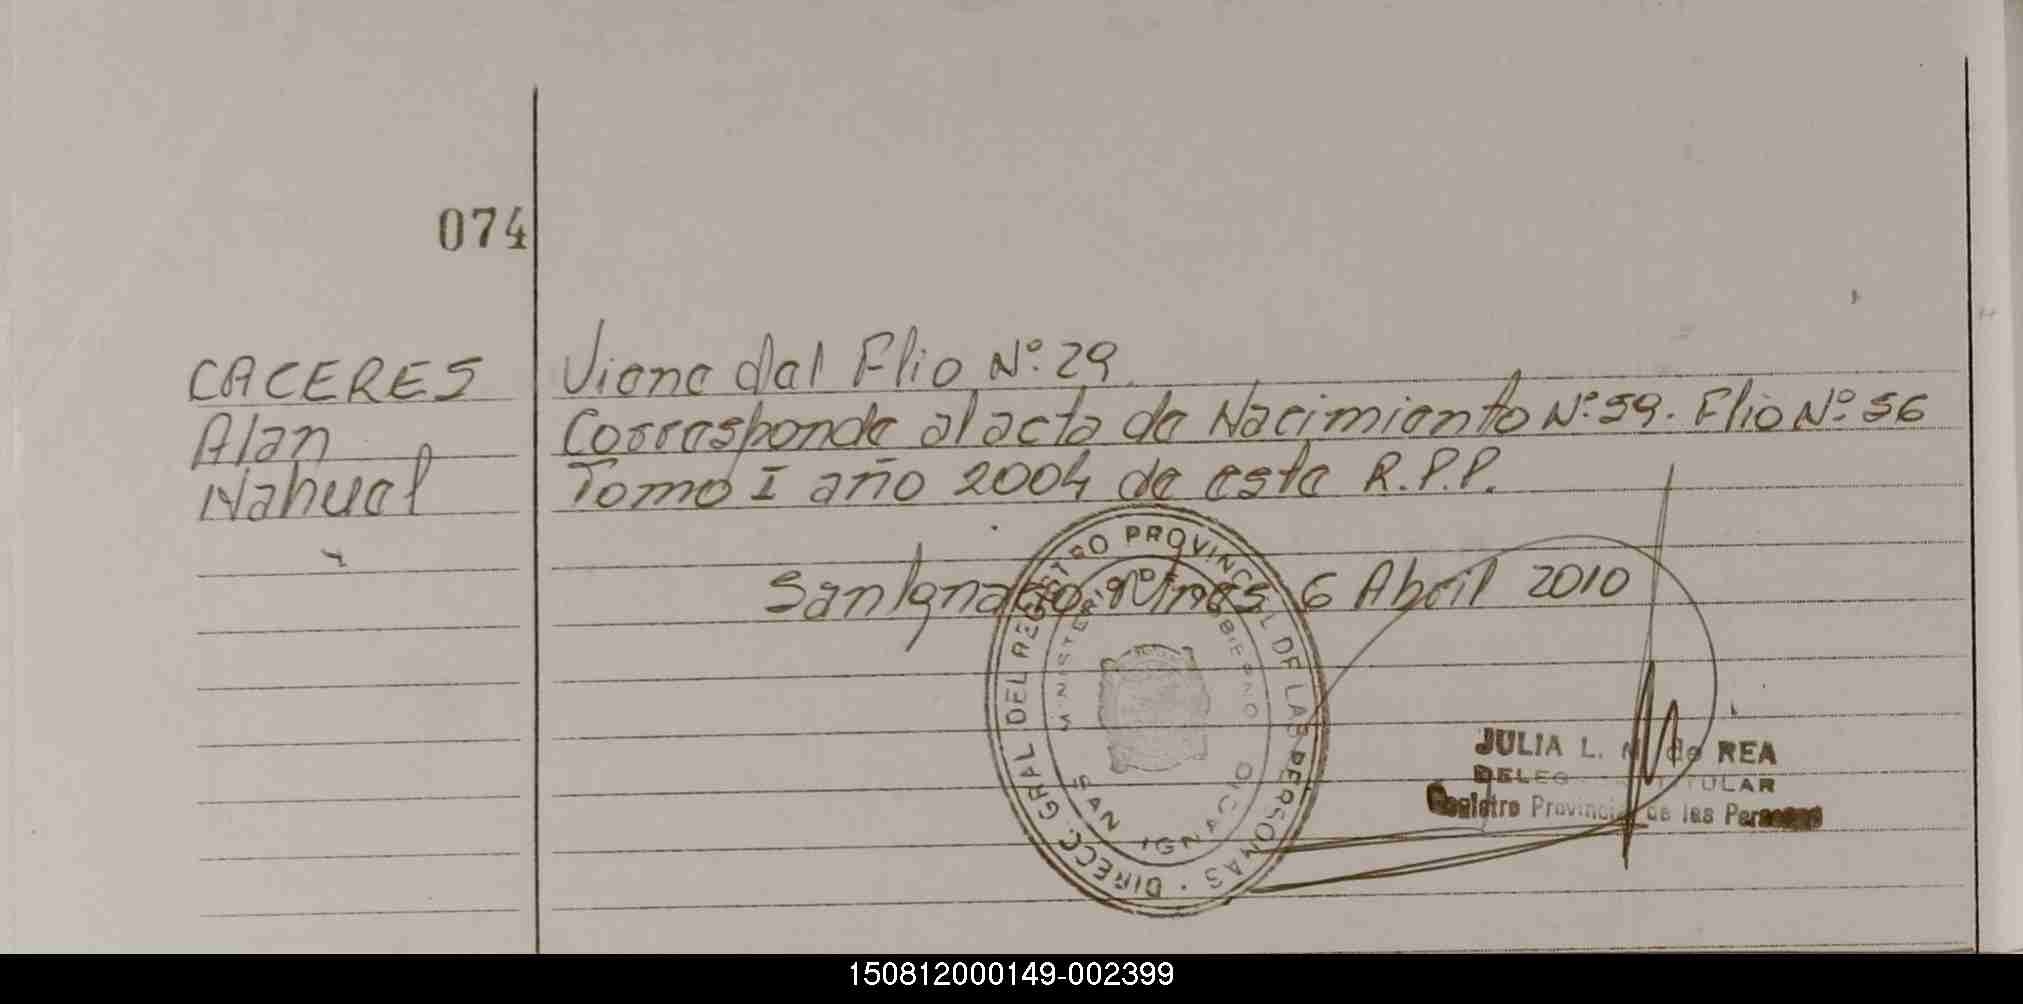 074
CACERES
Alan
Nahuel
Viene del Flio Nº: 29
Corresponde al acta de Nacimiento Nº 59. Flio Nº 56
Tomo I año 2004 de este R.P.P.
San Ignacio, Mnes, 6 Abril 2010
DIRECC. GRAL DEL REGISTRO PROVINCIAL DE LAS PERSONAS
MINISTERIO GOBIERNO
SAN IGNACIO
JULIA L. de REA
Registro Provincial de las Personas
150812000149-002399